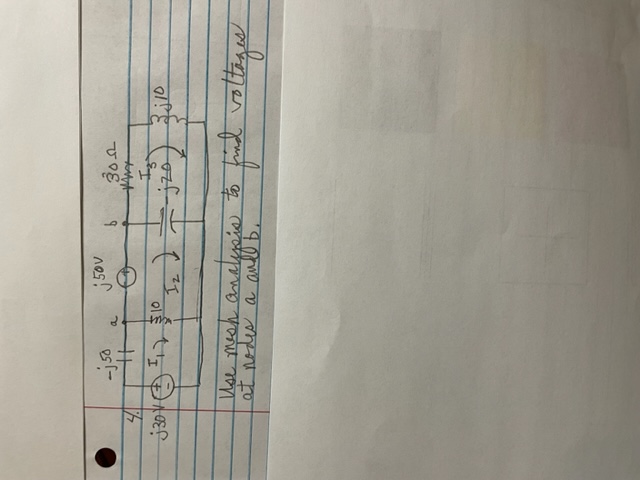 4.
-j50
a
j50V
b
30 Ω
j30V
+
-
I1
10
I2
-j20
I3
j10
Use mesh analysis to find voltages
at nodes a and b.